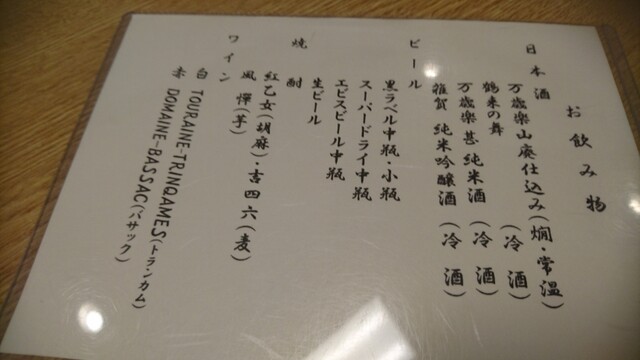 お飲み物
日本酒
万歳楽山廃仕込み(燗・常温)
鶴来の舞 (冷酒)
万歳楽 甚 純米酒 (冷酒)
雑賀 純米吟醸酒 (冷酒)
ビール
黒ラベル中瓶・小瓶
スーパードライ中瓶
エビスビール中瓶
生ビール
焼酎
紅乙女(胡麻)・吉四六(麦)
風憚(芋)
ワイン
白 TOURAINE-TRINQAMES(トランカム)
赤 DOMAINE-BASSAC(バサック)